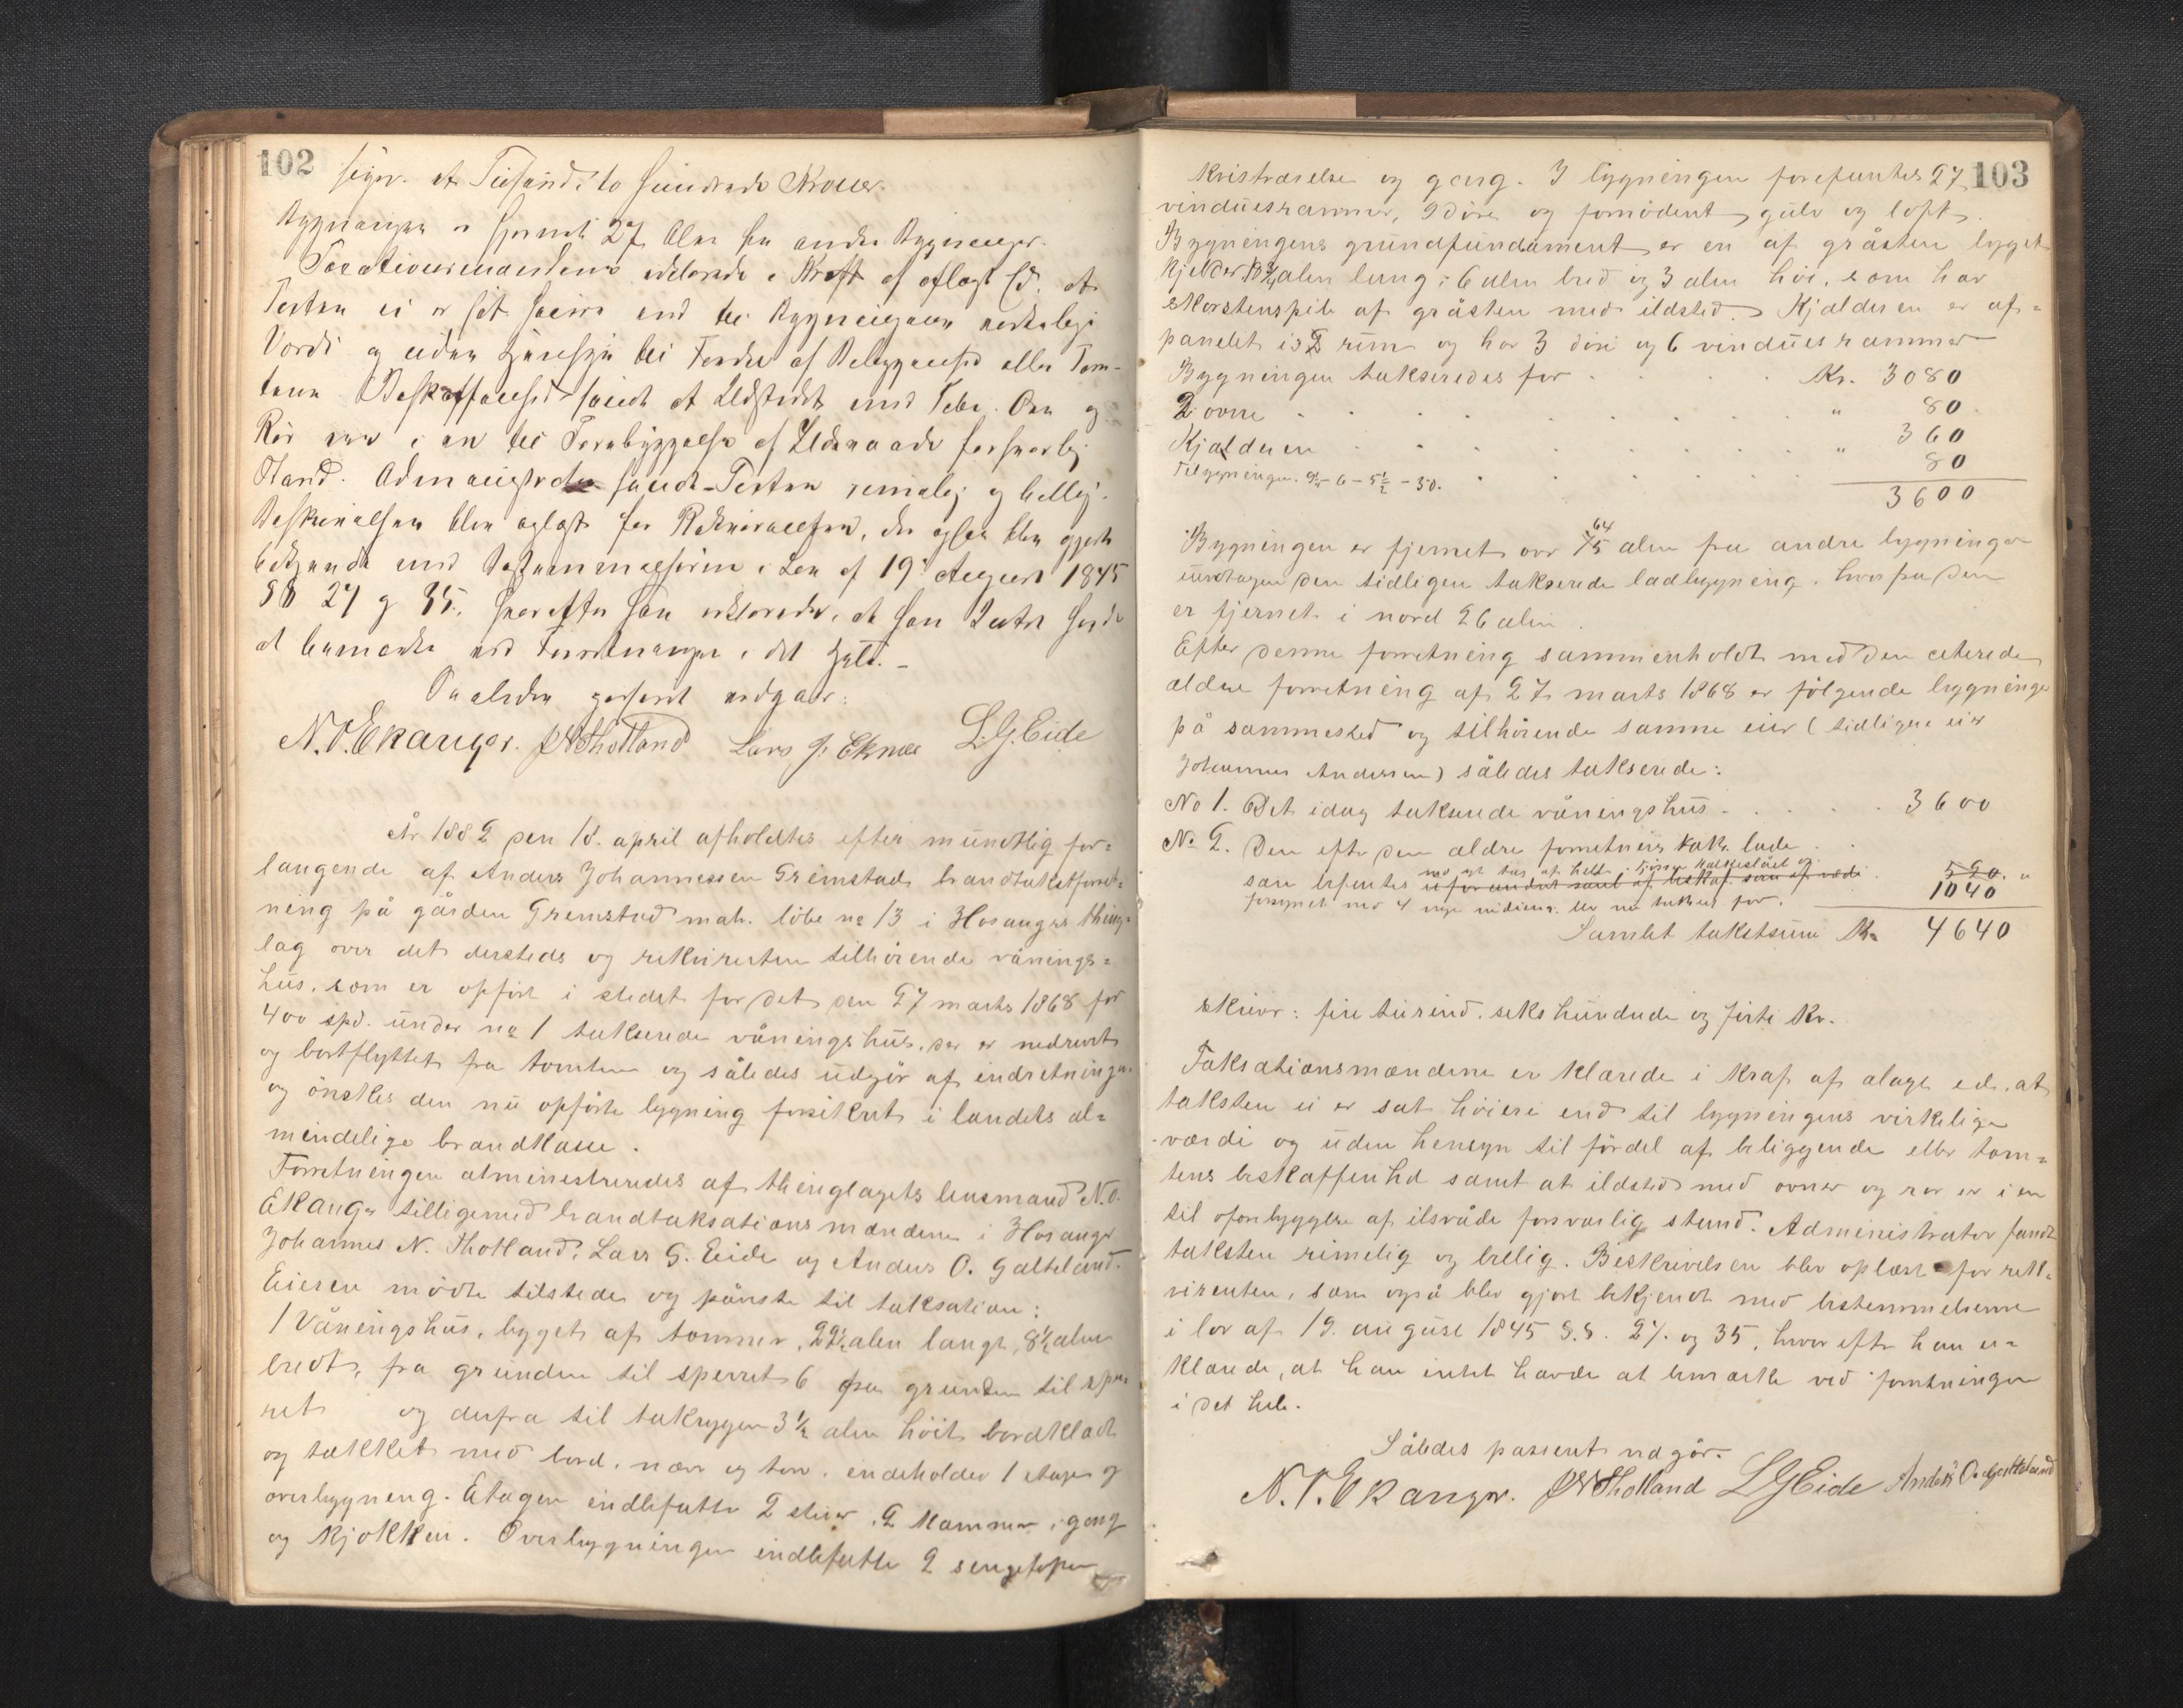 102
siger et Tusend to hundrede Kroner.
Bygningen er fjernet 27 Alen fra andre Bygninger.
Taxationsmændene erklærede i Kraft af aflagt Ed, at
Taxten ei er sat høiere end til Bygningens virkelige
Værdi og uden Hensyn til Fordel af Beliggenhed eller Tom-
tens Beskaffenhed samt at Ildstedet med Pibe, Ovn og
Rør var i en til Forebyggelse af Ildsvaade forsvarlig
Stand. Administrator fandt Taxten rimelig og billig.
Beskrivelsen blev oplæst for Rekvirenten, der ogsaa blev gjort
bekjendt med Bestemmelserne i Lov af 19 August 1845
§§ 27 og 35, hvorefter han erklærede, at han Intet havde
at bemærke ved Forretningen i det Hele. –
Saaledes passeret vedgaar:
N. O. Ekanger. J N Thotland Lars J. Eknæs L. G. Eide
År 1882 den 18. april afholdtes efter mündtlig for=
langende af Anders Johannessen Gremstad brandtakstforret=
ning på gården Gremstad mat. löbe no 13 i Hosangers thing=
lag over det dersteds og rekvirenten tilhörende vånings=
hüs, som er opfört i stedet for det den 27 marts 1868 for
400 spd. ünder no 1 takserede våningshüs, der er nedrevet
og bortflyttet fra tomten og således üdgår af indretningen
og önskes den nü opförte bygning forsikret i landets al=
mindelige brandkasse.
Forretningen atministreredes af thinglagets lensmand N. O.
Ekanger tilligemed brandtaksationsmændene i Hosanger
Johannes N. Thotland, Lars G. Eide og Anders O. Galteland.
Eieren mödte tilstede og påviste til taksation:
1 Våningshüs, bygget af tömmer, 22½ alen langt, 8½ alen
bredt, fra grunden til sperret 6 fra grunden til sper=
ret og derfra til takryggen 3½ alen höit, bordklædt
og tækket med bord, næver og torv, indeholder 1 etage og
overbygning. Etagen indbefatter 2 stuer, 2 kammer, gang
og kjøkken. Overbygningen indbefatter 2 sengeloper
103
Kvistværelse og gang. I bygningen forefantes 27
vindüesrammer, 9 döre og fornödent gülv og loft.
Bygningens gründfundament er en af gråsten bygget
kjelder 13¾ alen lang, 6 alen bred og 3 alen höi, som har
skorstenspibe af gråsten med ildsted. Kjælderen er af=
panelet i 2 rüm og har 3 döre og 6 vindües rammer
Bygningen takseredes for Kr. 3080
2 ovne " 80
Kjælderen " 360
Tilbygningen. 9¼ - 6 - 5½ - 30. 80
3600
64
Bygningen er fjernet over 75 alen fra andre bygninger
undtagen den tidligere takserede ladbygning, hvorfra den
er fjernet i nord 26 alen.
Efter denne forretning sammenholdt med den citerede
ældre forretning af 27 marts 1868 er fölgende bygninger
på sammested og tilhörende samme eier (tidligere eier
Johannes Andersen) således takserede:
No 1. Det idag takserede våningshüs. 3600
No 2. Den efter den ældre forretning taks. lade
520. "
forsynet med 4 nye 1040
Samlet takstsum Kr 4640
skriver: fire tüsind, seks hündrede og firti Kr.
Taksationsmændene erklærede i kraft af alagt ed, at
taksten ei er sat höiere end til bygningens virkelige
værdi og üden hensyn til fördel af beliggende eller tom=
tens beskaffenhed samt at ildsted med ovner og rør er i en
til oforebyggelse af ilsvåde forsvarlig stand. Administrator fandt
taksten rimelig og billig. Beskrivelsen blev oplæst for rekk=
virenten, som også blev gjort bekjendt med bestemmelserne
i lov af 19. august 1845 §.§. 27. og 35, hvorefter han er=
klærede, at han intet havde at bemærke ved forretningen
i det hele.
Således passeret vedgår.
N. O. Ekanger. J N Thotland L G Eide Anders O. Galteland